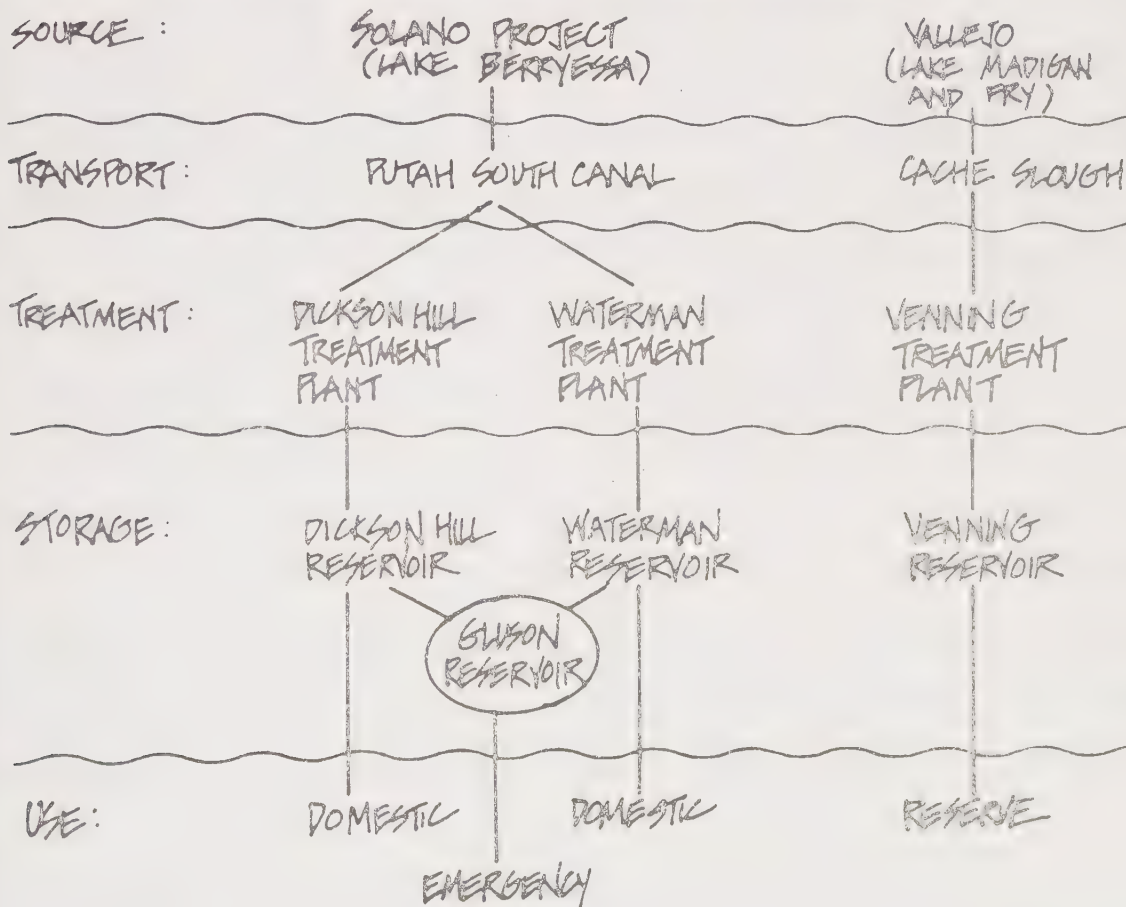 SOURCE :
SOLANO PROJECT
(LAKE BERRYESSA)
VALLEJO
(LAKE MADIGAN
AND FRY)
TRANSPORT :
PUTAH SOUTH CANAL
CACHE SLOUGH
TREATMENT :
DICKSON HILL
TREATMENT
PLANT
WATERMAN
TREATMENT
PLANT
VENNING
TREATMENT
PLANT
STORAGE :
DICKSON HILL
RESERVOIR
WATERMAN
RESERVOIR
VENNING
RESERVOIR
RESERVOIR
USE :
DOMESTIC
DOMESTIC
RESERVE
EMERGENCY